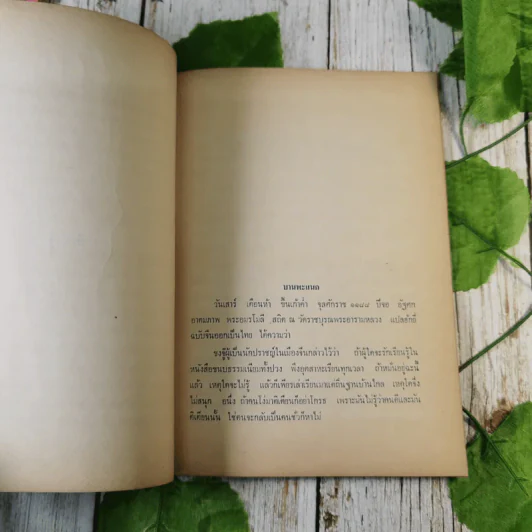 บานพะแนก
วันเสาร์ เดือนห้า ขึ้นเก้าค่ำ จุลศักราช ๑๑๘๘ ปีจอ อัฐศก
อาตมภาพ พระอมรโมลี สถิต ณ วัดราชบุรณพระอารามหลวง แปลหักยี่
ฉบับจีนออกเป็นไทย ได้ความว่า
ขงจู๊ผู้เป็นนักปราชญ์ในเมืองจีนกล่าวไว้ว่า ถ้าผู้ใดจะรักเรียนรู้ใน
หนังสือขนบธรรมเนียมทั้งปวง พึงอุตสาหะเรียนทุกเวลา ถ้าหมั่นอยู่ฉะนี้
แล้ว เหตุใดจะไม่รู้ แล้วก็เพียรเล่าเรียนมาแต่ถิ่นฐานบ้านไกล เหตุใดจึง
ไม่สนุก อนึ่ง ถ้าคนโง่มาติเตียนก็อย่าโกรธ เพราะมันไม่รู้ว่าคนดีและมัน
ติเตียนนั้น ใช่คนจะกลับเป็นคนชั่วก็หาไม่